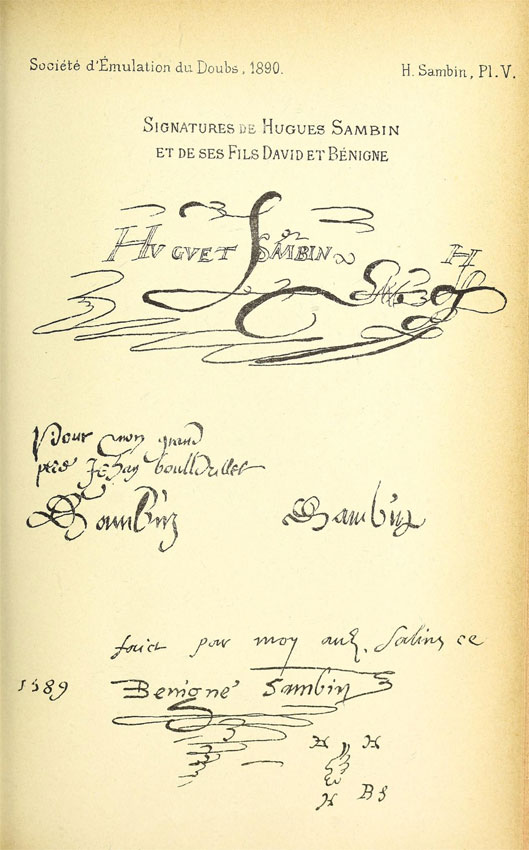 Société d'Émulation du Doubs, 1890.
H. Sambin, Pl. V.
SIGNATURES DE HUGUES SAMBIN
ET DE SES FILS DAVID ET BÉNIGNE
HUGUET SAMBIN
H
pour mon grand
Jehan
Sambin
Sambin
faict par moy Salins ce
1589
Benigne Sambin
H H
H BS